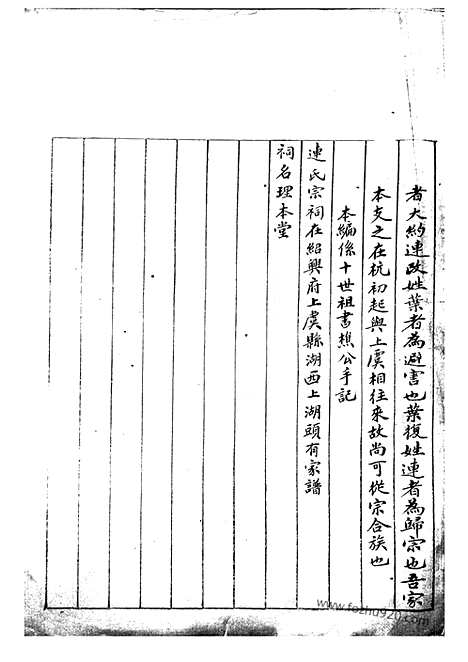 者大約連改姓葉者為避害也葉復姓連者為歸宗也吾家
本支之在杭初起與上虞相往來故尚可從宗合族也
本編係十世祖書樵公手記
連氏宗祠在紹興府上虞縣湖西上湖頭有家譜
祠名理本堂
www.fozhu920.com